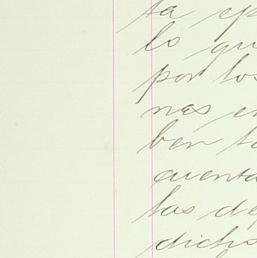 ta ep
lo qu
por los
nas en
ben ta
cuenta
las de
dichs